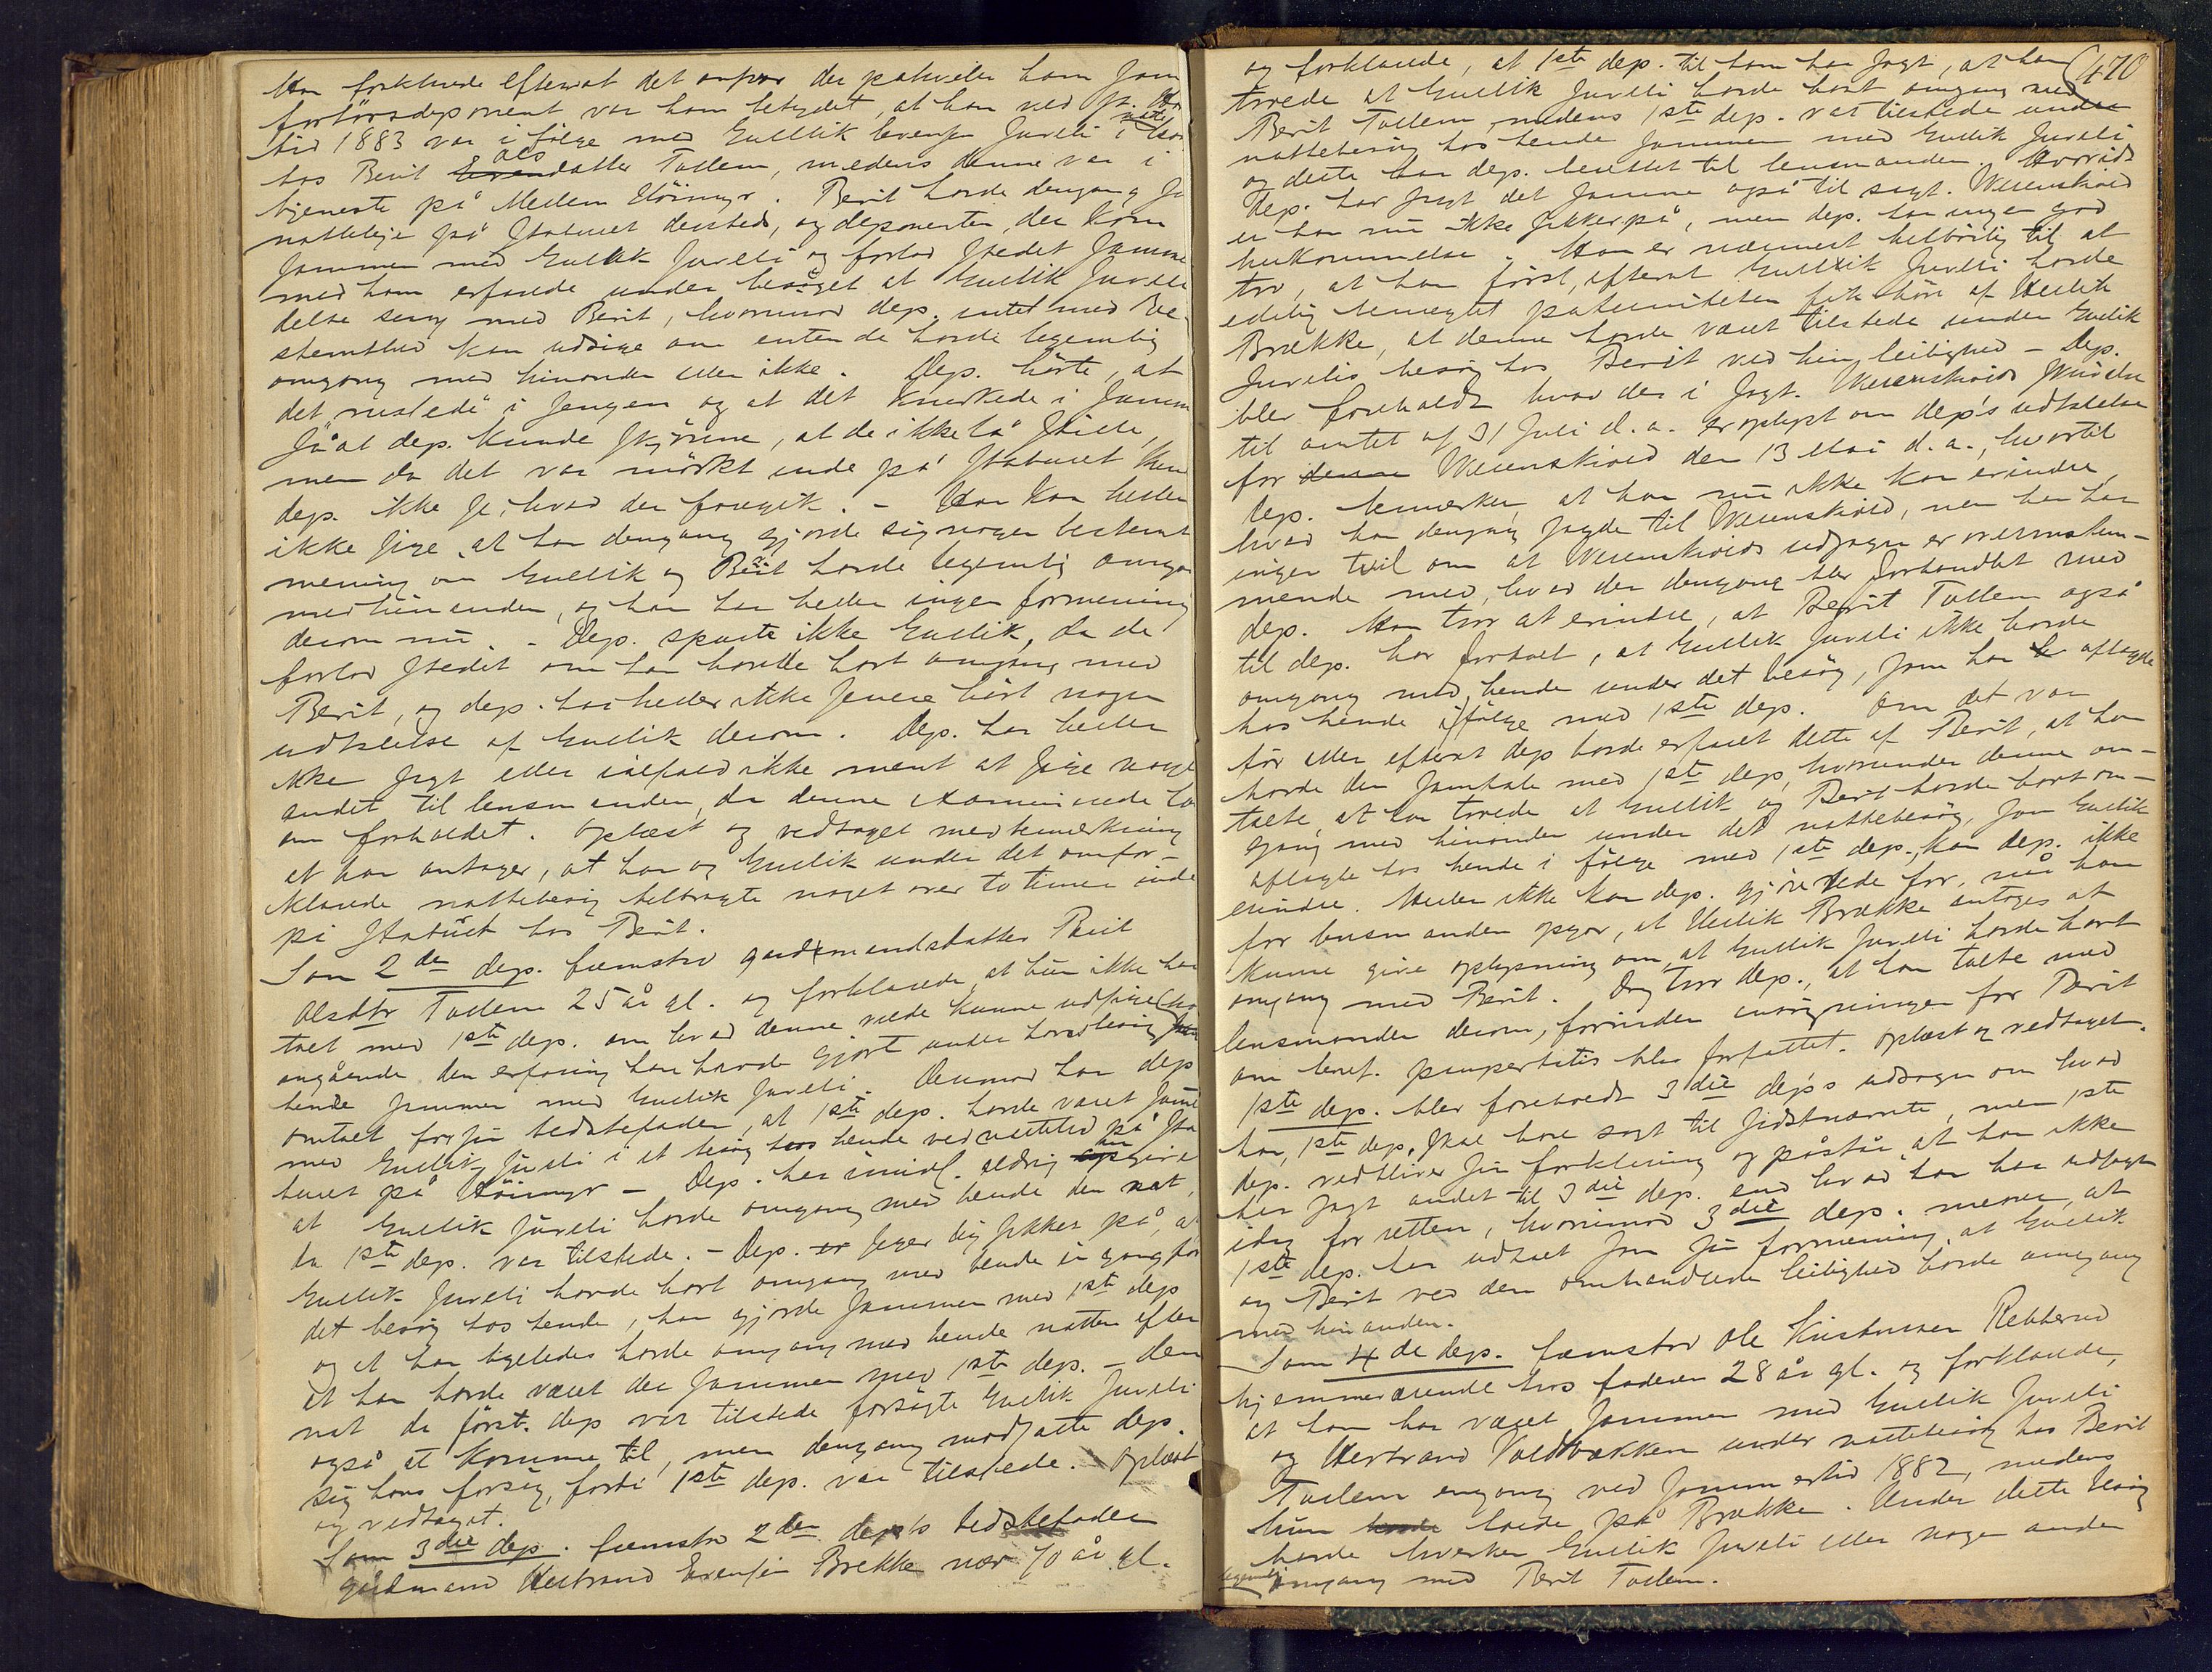 Han forklarede efterat det ansvar der påhviler ham som
forhörsdeponent var ham betydet, at han ved St. Hans
tid 1883 var i fölge med Gullik Evensen Juveli i natte besög
hos Berit Olsdatter Tollem, medens denne var i
tjeneste på Mellem Höimyr. Berit havde dengang sit
natteleje på staburet dersteds, og deponenten, der kom
sammen med Gullik Juveli og forlod stedet sammen
med ham erfarede under besöget at Gullik Juveli
delte seng med Berit, hvorimod dep. intet med Be-
stemthed kan udsige om enten de havde legemlig
omgang med hinanden eller ikke. Dep. hörte, at
det "ruslede" i sengen og at det knirkede i samme
så at dep. kunde skjönne, at de ikke lå stille,
men da det var mörkt inde på staburet kunde
dep. ikke se, hvad der foregik. - Han kan heller
ikke sige, at han dengang gjorde sig nogen bestemt
mening om Gullik og Berit havde legemlig omgang
med hinanden, og han har heller ingen formening
derom nu. - Dep. spurte ikke Gullik, da de
forlod stedet om han havde havt omgang med
Berit, og dep. har heller ikke senere hört nogen
udtalelse af Gullik derom. Dep. har heller
ikke sagt eller ialfald ikke ment at sige noget
andet til lensmanden, da denne examinerede ham
om forholdet. Oplæst og vedtaget med bemærkning
at han antager, at han og Gullik under det omfor-
klarede nattebesög tilbragte noget over to timer inde
på staburet hos Berit.
Som 2den dep. fremstod gardmandsdatter Berit
Olsdtr Tollem 25 år gl. og forklarede, at hun ikke har
talt med 1ste dep. om hvad denne vilde kunne udsige
angående den erfaring han havde gjort under besög hos
hende sammen med Gullik Juveli. Derimod har dep
omtalt for sin bedstefader, at 1ste dep. havde været sammen
med Gullik Juveli i et besög hos hende ved nattetid på sta
buret på Höimyr - Dep. har imidl. aldrig
at Gullik Juveli havde omgang med hende den nat,
da 1ste dep. var tilstede. - Dep. siger sig sikker på, at
Gullik Juveli havde havt omgang med hende en gang för
det besög hos hende, han gjorde sammen med 1ste dep
og at han ligeledes havde omgang med hende natten efter
at han havde været der sammen med 1ste dep. - den
nat da först. dep var tilstede forsögte Gullik Juveli
også at komme til, men dengang modsatte dep.
sig hans forsög, fordi 1ste dep. var tilstede. Oplæst
og vedtaget.
Som 3die dep. fremstod 2den dep's bedstefader
gårdmand Herbrand Evensen Brekke nær 70 år gl.
470
og forklarede, at 1ste dep. til ham har sagt, at han
troede at Gullik Juveli havde havt omgang med
Berit Tollem, medens 1ste dep. var tilstede under
nattebesög hos hende sammen med Gullik Juveli
og dette har dep. berettet til lensmanden. Hvorvidt
Dep. har sagt det samme også til sagf. Weienskiold
er han nu ikke sikker på, men dep. har ingen god
hukommelse. Han er nærmest tilböielig til at
tro, at han först, efterat Gullik Juveli havde
edelig benegtet paterniteten fik höre af Ulerik
Brække, at denne havde været tilstede under Gullik
Juvelis besög hos Berit ved hin leilighed - Dep.
blev foreholdt hvad der i sagf. Weienskiolds skrivelse
til amtet af 31 Juli d. a. er oplyst om dep's udtalelse
for Weienskiold den 13 Mai d. a., hvortil
Dep. bemærker, at han nu ikke kan erindre,
hvad han dengang sagde til Weienskiold, men han har
ingen tvil om at Weienskiolds udsagn er overensstem-
mende med, hvad der dengang blev forhandlet med
dep. Han tror at erindre, at Berit Tollem også
til dep. har fortalt, at Gullik Juveli ikke havde
omgang med hende under det besög, som han aflagde
hos hende i fölge med 1ste dep. Om det var
för eller efterat dep havde erfaret dette af Berit, at han
havde den samtale med 1ste dep, hvorunder denne om-
talte, at han troede at Gullik og Berit havde havt om-
gang med hinanden under det nattebesög, som Gullik
aflagde hos hende i fölge med 1ste dep., kan dep. ikke
erindre. Heller ikke kan dep. gjöre rede for, når han
for lensmanden opgav, at Ulerik Brække antoges at
kunne give oplysning om, at Gullik Juveli havde havt
omgang med Berit. Dog tror dep., at han talte med
lensmanden derom, forinden ansögningen for Berit
om benef. paupertatis blev forfattet. Oplæst og vedtaget.
1ste dep. blev foreholdt 3die dep's udsagn om hvad
han, 1ste dep. skal have sagt til sidstnævnte, men 1ste
dep. vedbliver sin forklaring og påstår, at han ikke
har sagt andet til 3die dep. end hvad han har udsagt
idag for retten, hvorimod 3die dep. mener, at
1ste dep. har udtalt som sin formening, at Gullik
og Berit ved den omhandlede leilighed havde omgang
med hinanden.
Som 4de dep. fremstod Ole Kristensen Rebberud
hjemmeværende hos faderen 28 år gl. og forklarede,
at han har været sammen med Gullik Juveli
og Herbrand Voldbakken under nattebesög hos Berit
Tollem engang ved sommertid 1882, medens
hun boede på Brække. Under dette besög
havde hverken Gullik Juveli eller nogen anden
legemlig omgang med Berit Tollem.